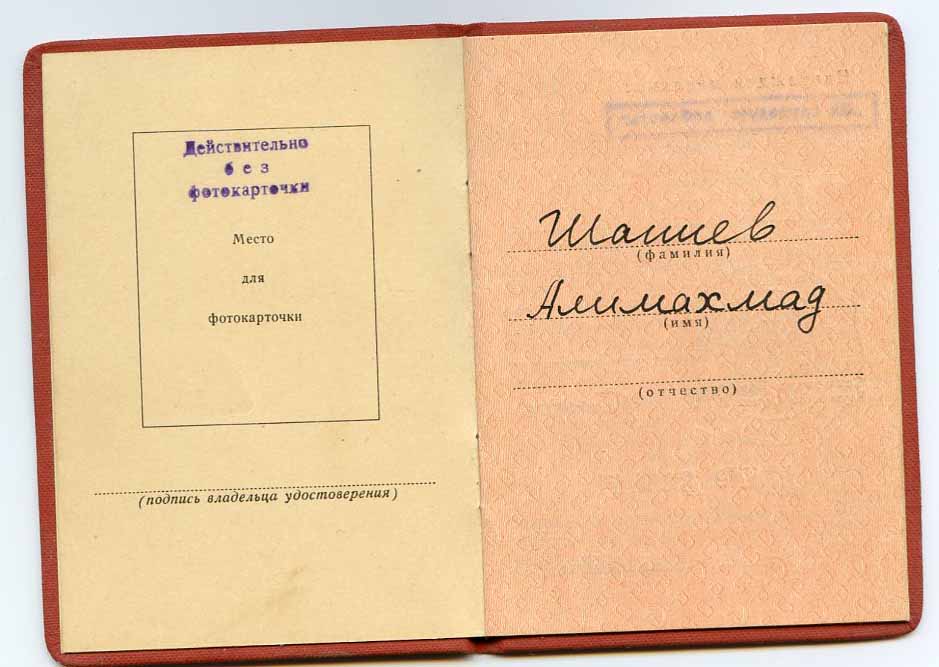 Действительно
без
фотокарточки
Место
для
фотокарточки
(подпись владельца удостоверения)
Шашев
(фамилия)
Алимахмад
(имя)
(отчество)